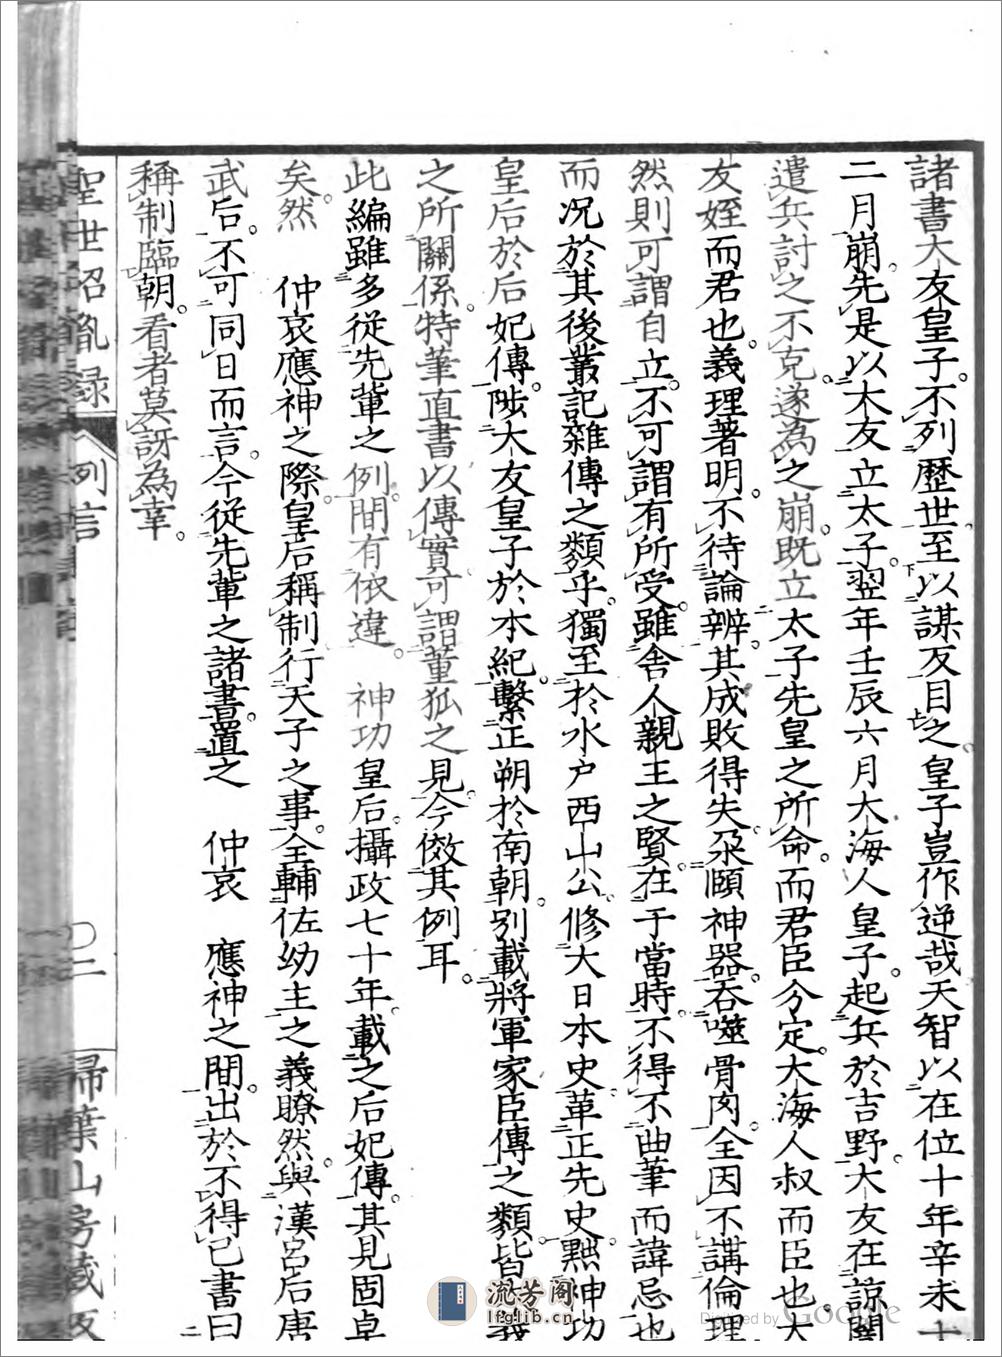 諸書大友皇子不列歷世至以謀反目之皇子豈作逆哉天智以在位十年辛未十
二月崩先是以大友立太子翌年壬辰六月大海人皇子起兵於吉野大友在諒闇
遣兵討之不克遂為之崩既立太子先皇之所命而君臣分定大海人叔而臣也大
友姪而君也義理著明不待論辨其成敗得失朶頤神器吞噬骨肉全因不講倫理
然則可謂自立不可謂有所受雖舍人親王之賢在于當時不得不曲筆而諱忌也
而况於其後叢記雜傳之類乎獨至於水户西山公修大日本史革正先史黜神功
皇后於后妃傳陟大友皇子於本紀繫正朔於南朝別載將軍家臣傳之類皆義
之所關係特筆直書以傳實可謂董狐之見今傚其例耳
此編雖多從先輩之例間有依違神功皇后攝政七十年載之后妃傳其見固卓
矣然仲哀應神之際皇后稱制行天子之事全輔佐幼主之義瞭然與漢呂后唐
武后不可同日而言今從先輩之諸書置之仲哀應神之間出於不得已書曰
稱制臨朝看者莫訝為幸
聖世紹胤録 例言 〇二 掃葉山房藏版
流芳阁
lfglib.cn
Digitized by Google